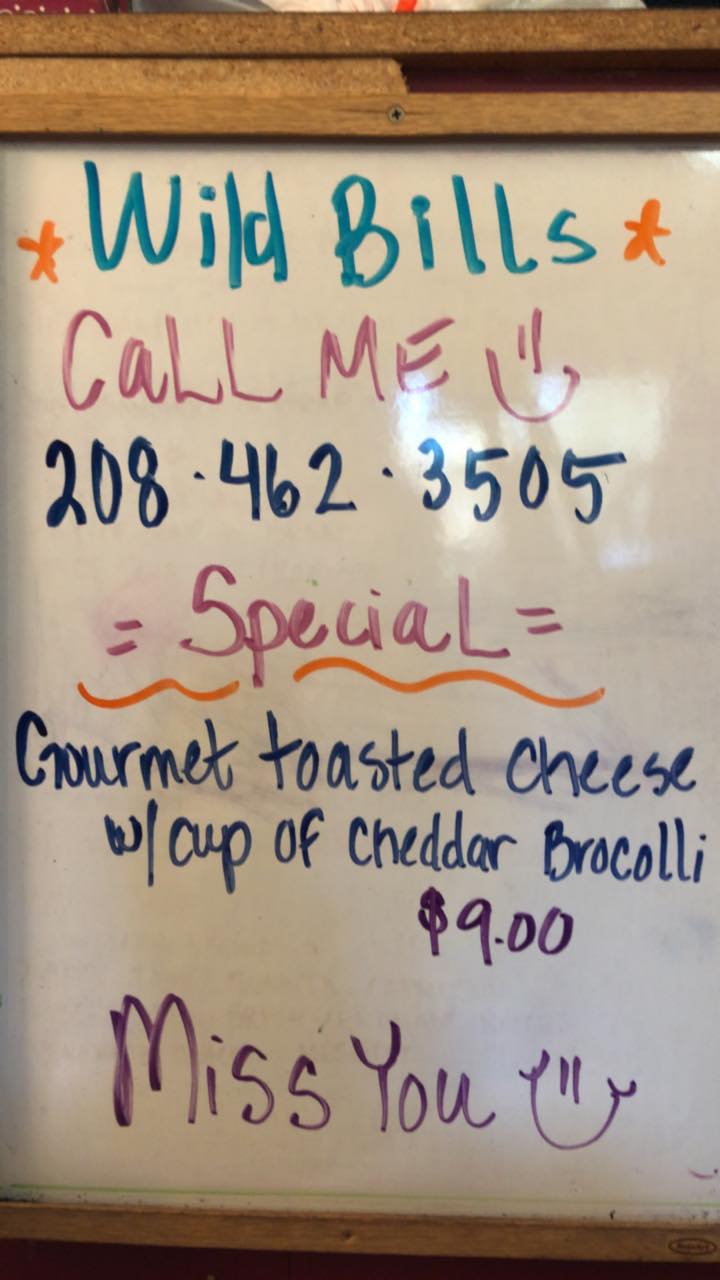 * Wild Bills *
CaLL ME
208·462·3505
= SpeciaL =
Gourmet toasted cheese
w/ cup of cheddar Brocolli
$9.00
Miss You